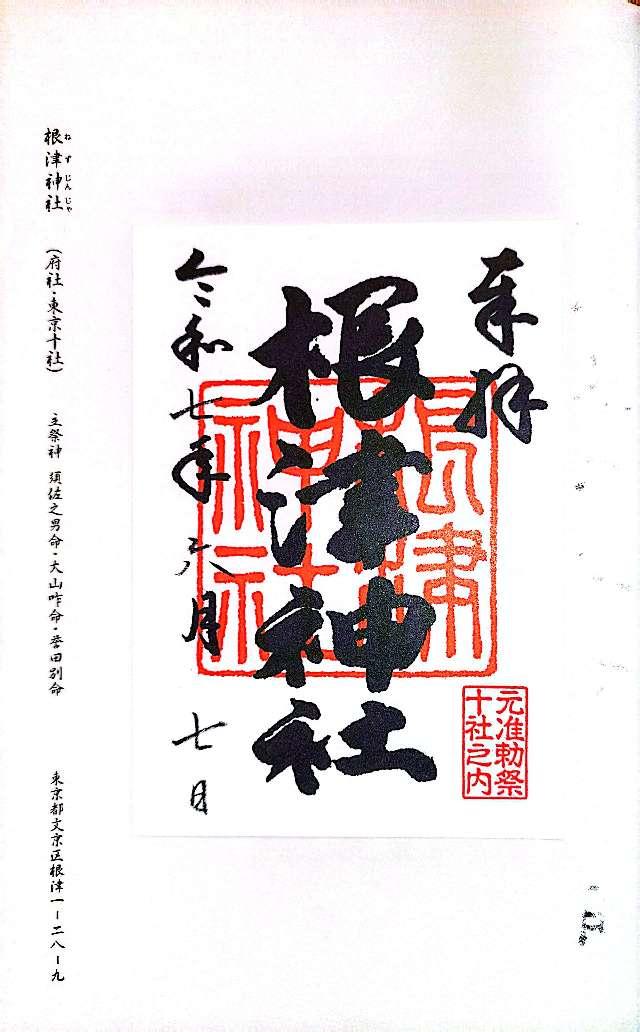 奉拝
根津神社
令和七年六月七日
根津神社
元准勅祭
十社之内
根津神社 (府社・東京十社) 主祭神 須佐之男命・大山咋命・誉田別命 東京都文京区根津一ー二八ー九
ねづじんじゃ